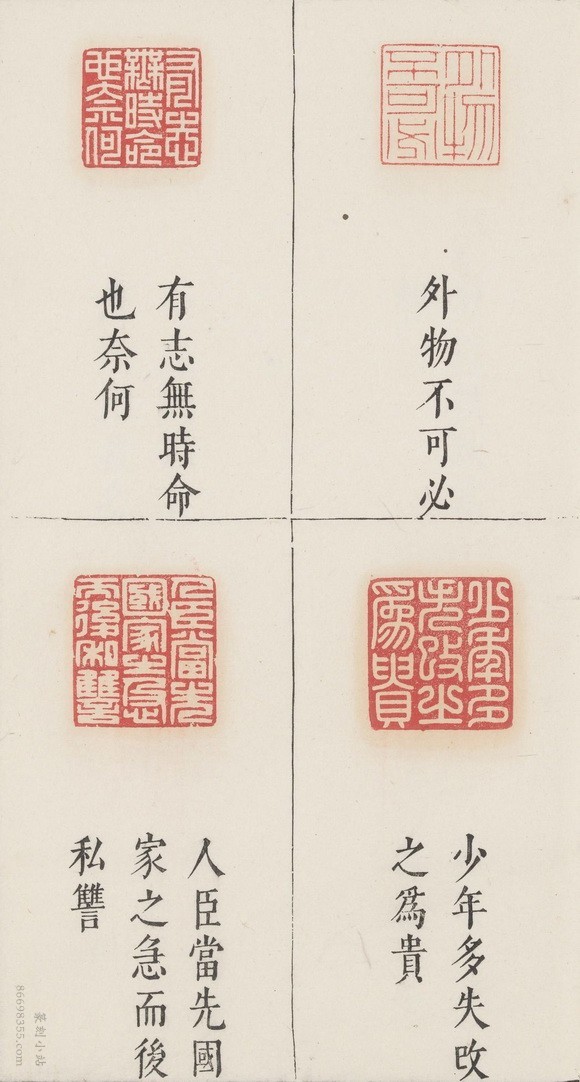 外物不可必
有志無時命
也奈何
少年多失改
之為貴
人臣當先國
家之急而後
私讐
篆刻小站
86698355.com